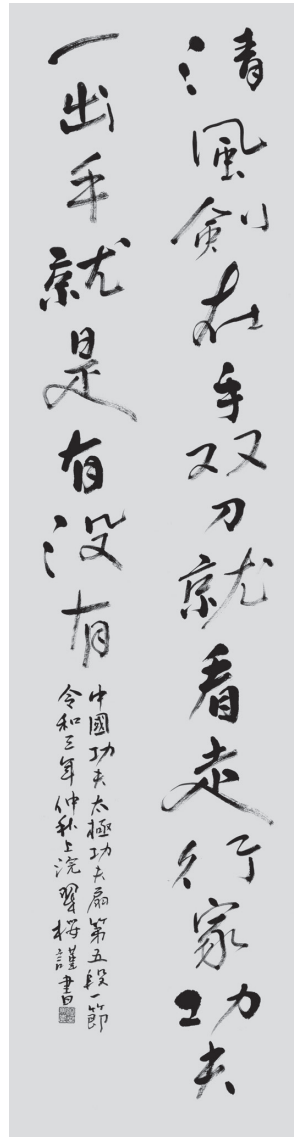 清風剣在手双刀就看走行家功夫
一出手就是有没有
中國功夫太極功夫扇第五段一節
令和三年仲秋上浣翠桜謹書